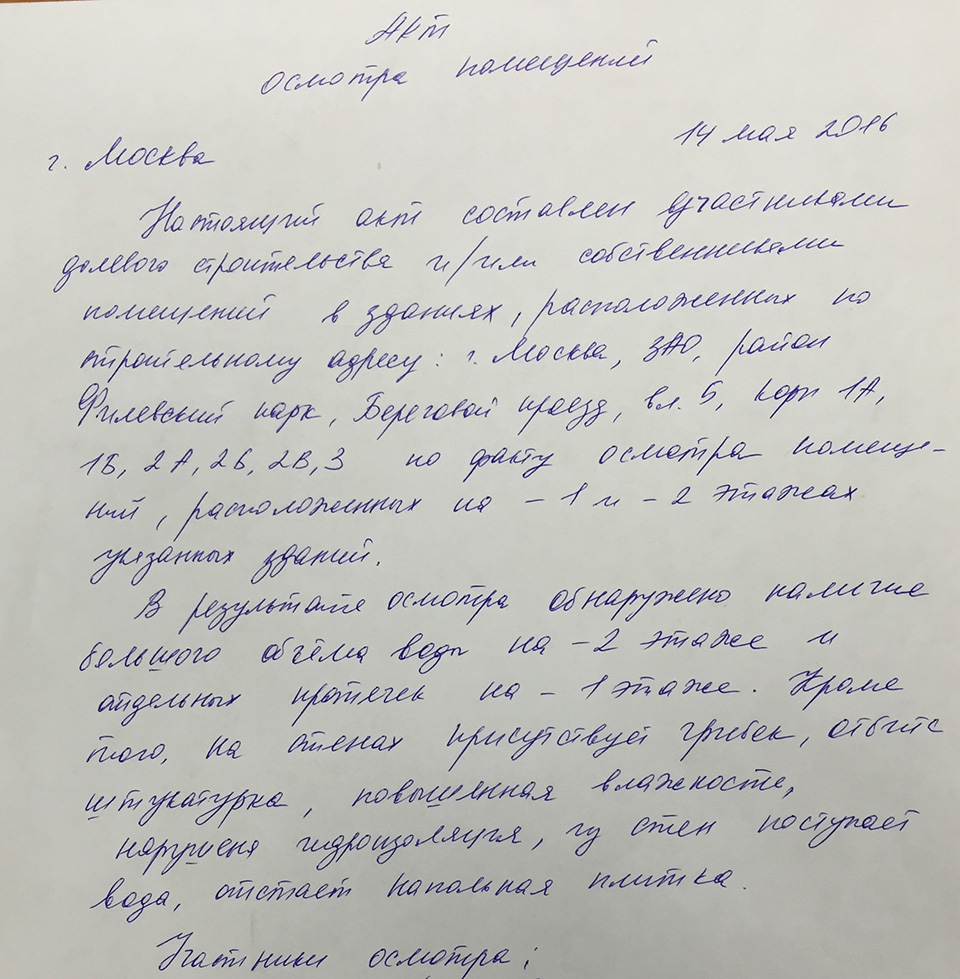 Акт
осмотра помещений
г. Москва
14 мая 2016
Настоящий акт составлен участниками
долевого строительства и/или собственниками
помещений в зданиях, расположенных по
строительному адресу: г. Москва, ЗАО, район
Филевский парк, Береговой проезд, вл. 5, корп 1А,
1Б, 2А, 2Б, 2В, 3 по факту осмотра помеще-
ний, расположенных на -1 и -2 этажах
указанных зданий.
В результате осмотра обнаружено наличие
большого объёма воды на -2 этаже и
отдельных протечек на -1 этаже. Кроме
того, на стенах присутствует грибок,
штукатурка, повышенная влажность,
нарушена гидроизоляция, из стен поступает
вода, отстает напольная плитка.
Участники осмотра: